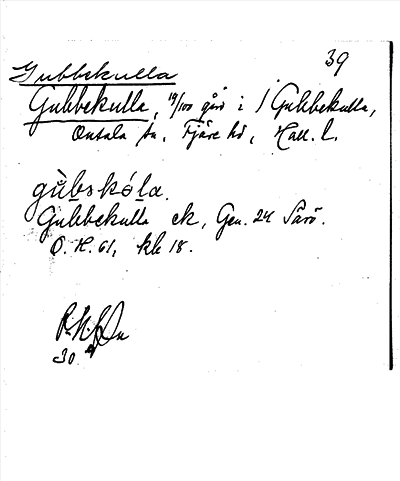 39
Gubbekulla
Gubbekulla, 19/100 gård i 1 Gubbekulla,
Onsala sn, Fjäre hd, Hall. l.
gùbskóla.
Gubbekulla ek, Gen. 24 Särö.
O. H. 61, kk 18.
30